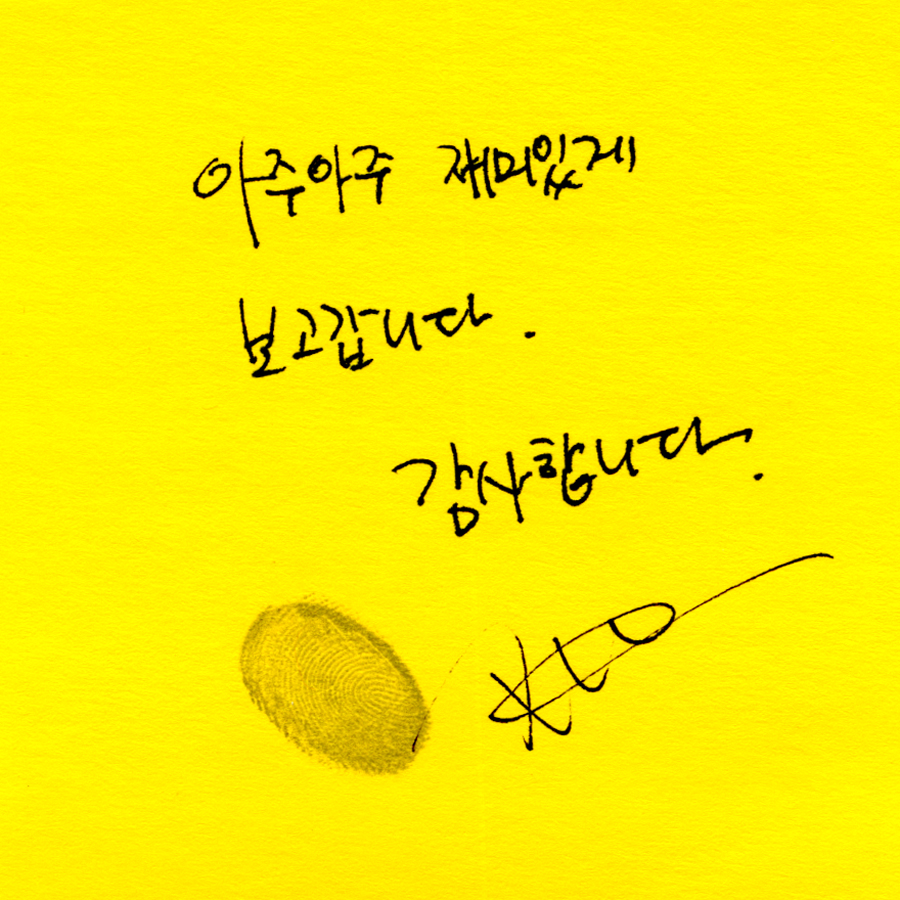 아주아주 재미있게
보고갑니다.
감사합니다.